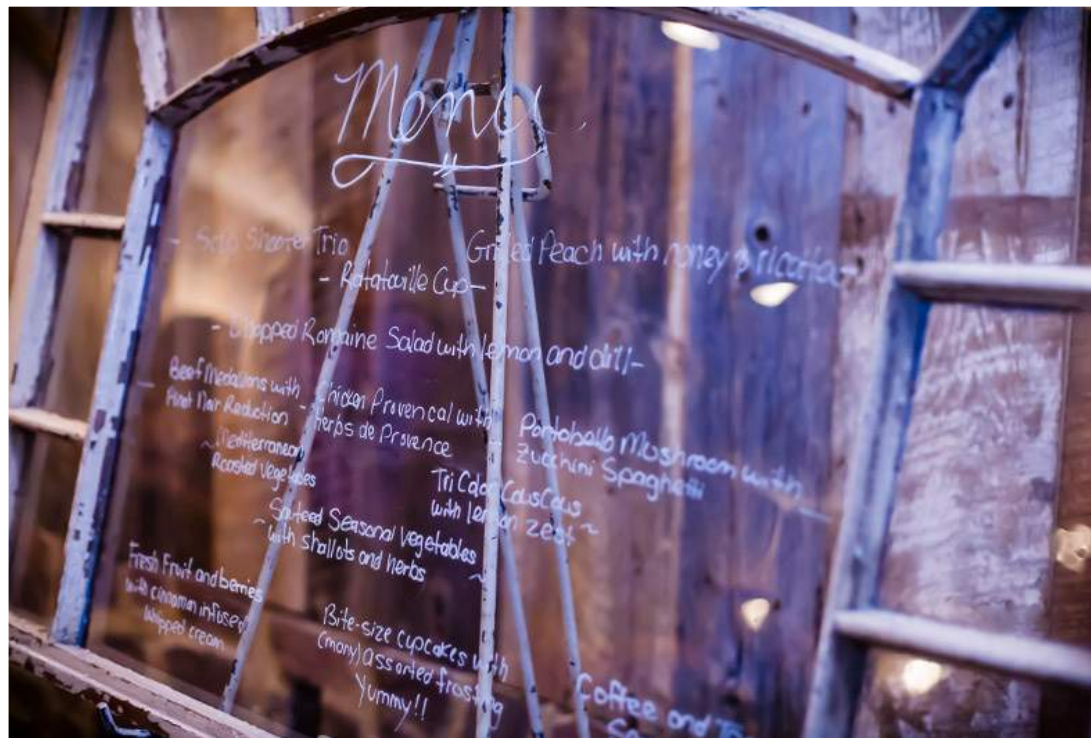 Menu
- Soup Shooter Trio
Grilled Peach with honey & ricotta -
- Ratatouille Cup -
- Chopped Romaine Salad with lemon and dill -
Beef Medallions with
Pinot Noir Reduction
- Chicken Provencal with
Herbs de Provence
Portobello Mushroom with
Zucchini Spaghetti
~ Mediterranean
Roasted Vegetables
Tri Color CousCous
with lemon zest ~
~ Sauteed Seasonal Vegetables
with shallots and herbs ~
Fresh Fruit and berries
with cinnamon infused
Whipped cream
Bite-size cupcakes with
(many) assorted frosting
Yummy!!
Coffee and